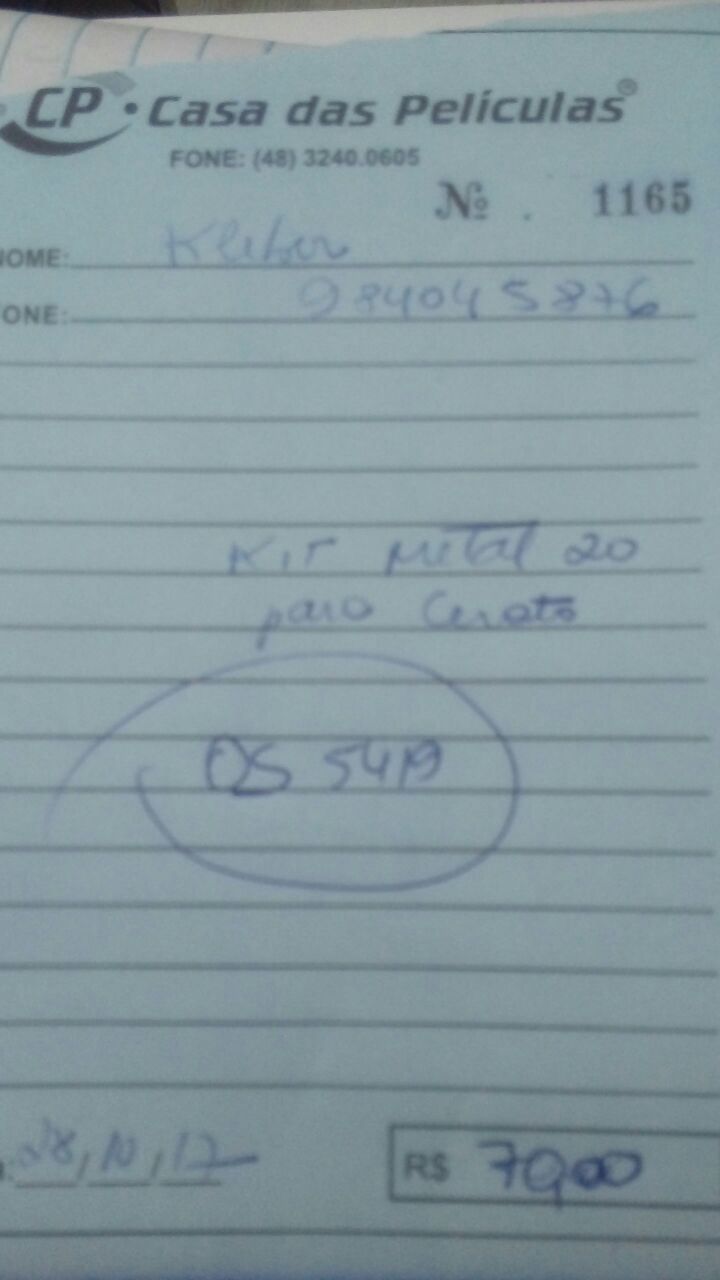 CP · Casa das Películas®
FONE: (48) 3240.0605
Nº . 1165
NOME: Kleber
FONE: 984045876
Kit Metal 20
para Cerato
OS 5419
28/10/17
R$ 7900